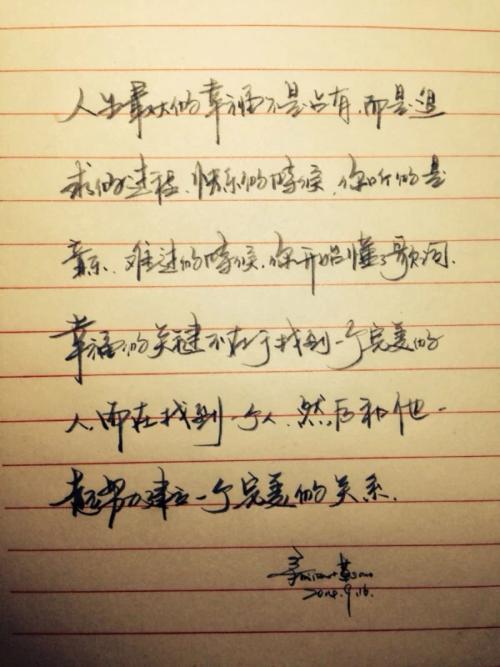 人生最大的幸福不是占有,而是追
求的过程。快乐的时候,你听的是
音乐、难过的时候,你开始懂了歌词.
幸福的关键不在于找到一个完美的
人,而在找到一个人、然后和他一
起努力建立一个完美的关系.
2014.9.16.